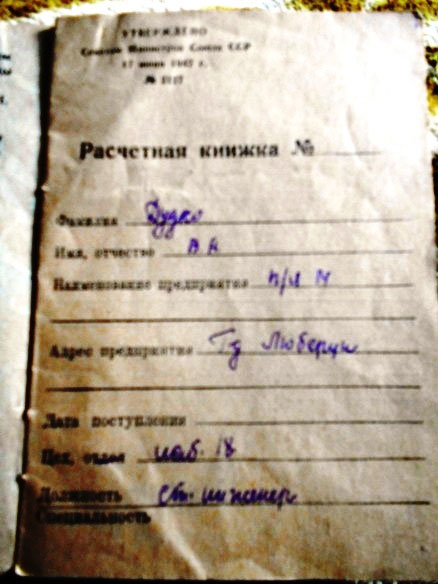 УТВЕРЖДЕНО
Советом Министров Союза ССР
17 июня г.
№
Расчетная книжка №
Фамилия Дудко
Имя, отчество В А
Наименование предприятия п/я М
Адрес предприятия Люберцы
Дата поступления
Цех, отдел лаб. 18
Должность ст. инженер
Специальность